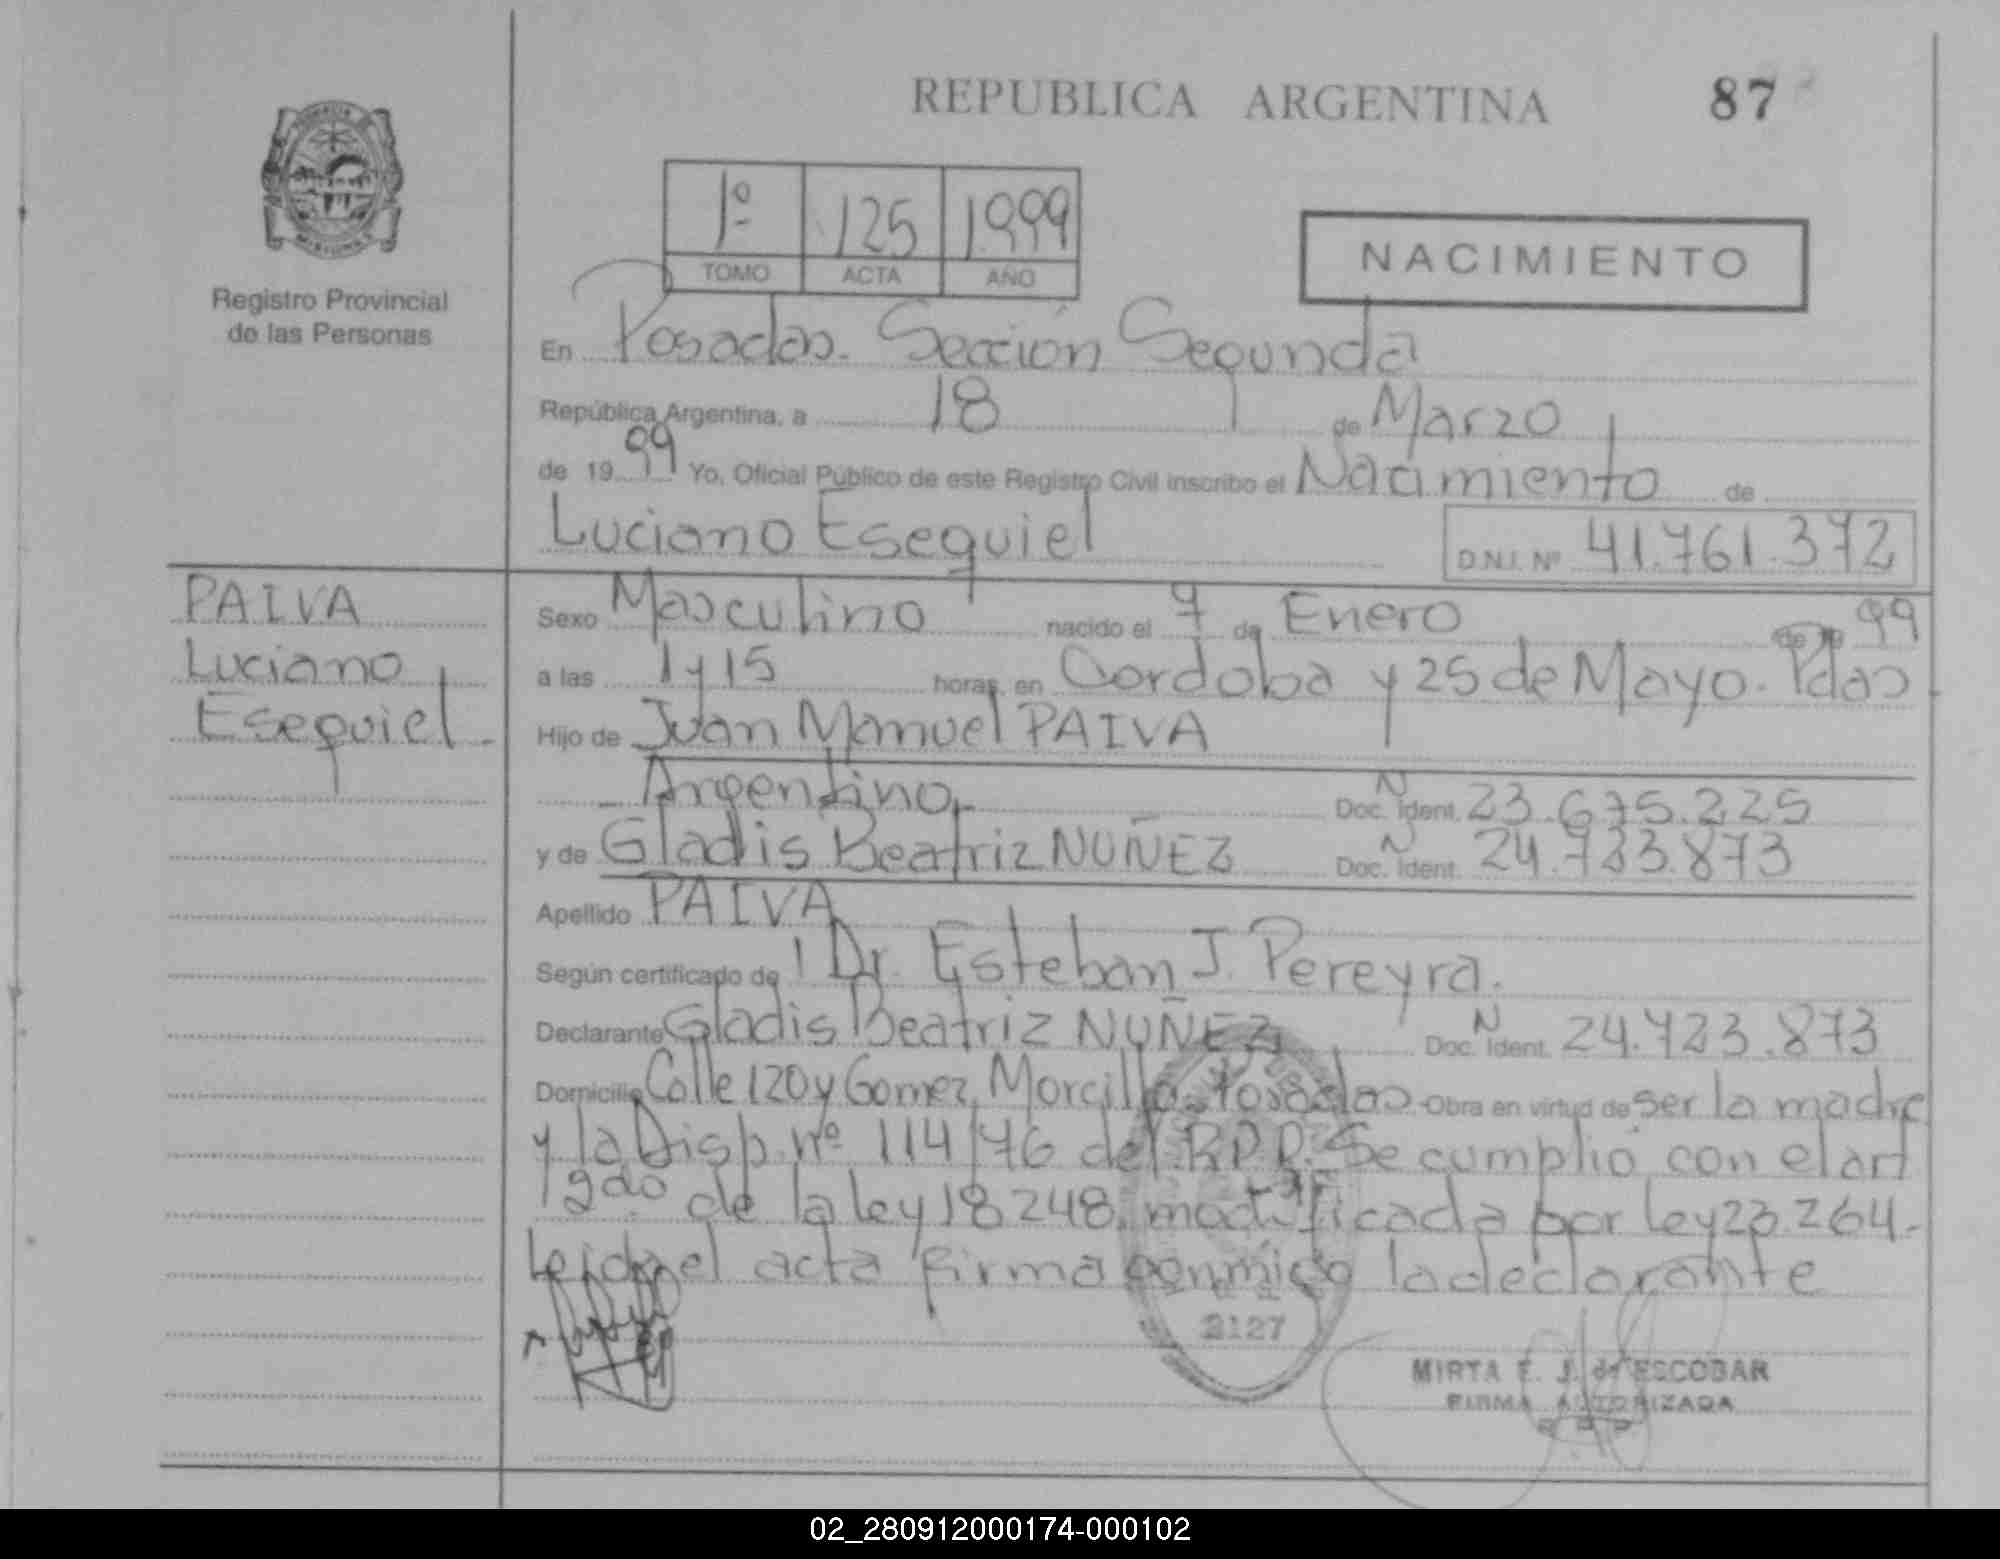 REPUBLICA ARGENTINA 87
1º 125 1.999
TOMO ACTA AÑO
NACIMIENTO
Registro Provincial
de las Personas
En Posadas. Sección Segunda
República Argentina, a 18 de Marzo
de 1999 Yo, Oficial Público de este Registro Civil inscribo el Nacimiento de
Luciano Esequiel D.N.I. Nº 41.761.372
PAIVA
Luciano
Esequiel.
Sexo Masculino nacido el 9 de Enero de 19 99
a las 1 y 15 horas, en Cordoba y 25 de Mayo. Pdas
Hijo de Juan Manuel PAIVA
Argentino Doc. Ident. N 23.675.225
y de Gladis Beatriz NUÑEZ Doc. Ident. N 24.723.873
Apellido PAIVA
Según certificado de Dr. Esteban J. Pereyra.
Declarante Gladis Beatriz NUÑEZ Doc. Ident. N 24.723.873
Domicilio Calle 120 y Gomez, Morcillo. Posadas. Obra en virtud de ser la madre
y la Disp. nº 114/76 del R.P.P. Se cumplio con el art
2do de la ley 18248, modificada por ley 23.264.
Leida el acta firma conmigo la declarante
2127
MIRTA E. J. de ESCOBAR
FIRMA AUTORIZADA
02_280912000174-000102